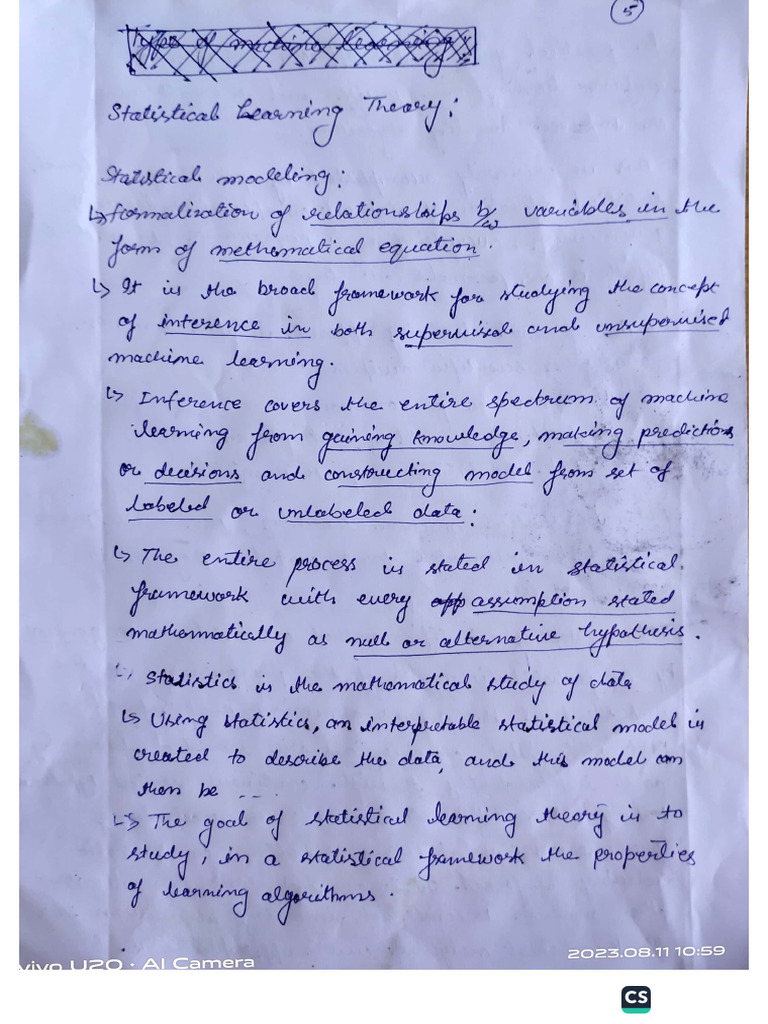 5
Types of machine learning:
Statistical Learning Theory:
Statistical modeling:
↳ formalization of relationships b/w variables in the
form of methematical equation.
↳ It is the broad framework for studying the concept
of inference in both supervised and unsupervised
machine learning.
↳ Inference covers the entire spectrum of machine
learning from gaining knowledge, making predictions
or decisions and constructing model from set of
labeled or unlabeled data:
↳ The entire process is stated in statistical
framework with every app assumption stated
mathematically as null or alternative hypothesis.
↳ Statistics is the mathematical study of data
↳ Using statistics, an interpretable statistical model is
created to describe the data, and this model can
then be ---
↳ The goal of statistical learning theory is to
study, in a statistical framework the properties
of learning algorithms.
vivo U20 · AI Camera
2023.08.11 10:59
CS